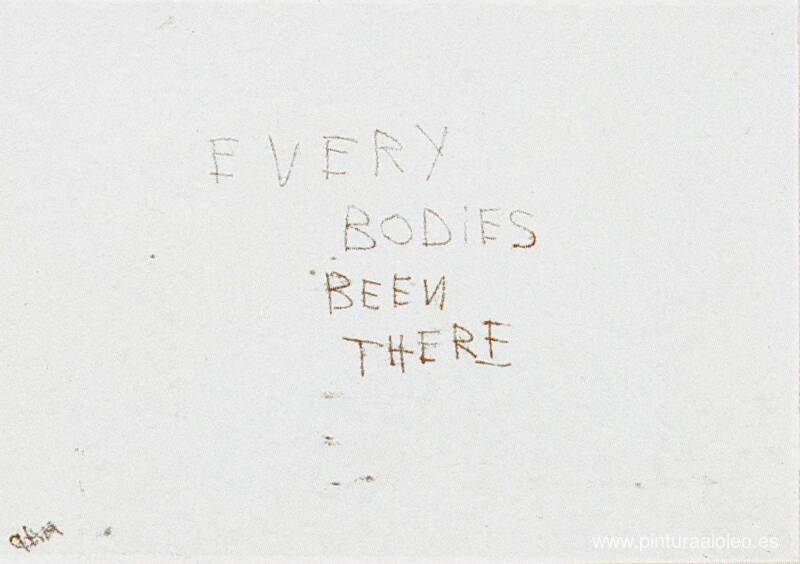 EVERY
BODIES
BEEN
THERE
www.pinturaaloleo.es